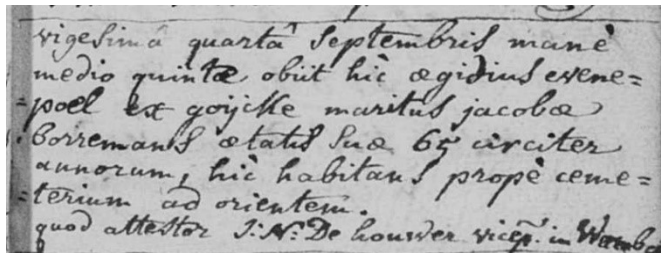 vigesimâ quartâ Septembris manè
medio quintæ obiit hîc ægidius evene=
=poel ex goijcke maritus jacobæ
borremans ætatis suæ 65 circiter
annorum, hîc habitans propè ceme=
=terium ad orientem.
quod attestor J: N: De houwer vicep. in